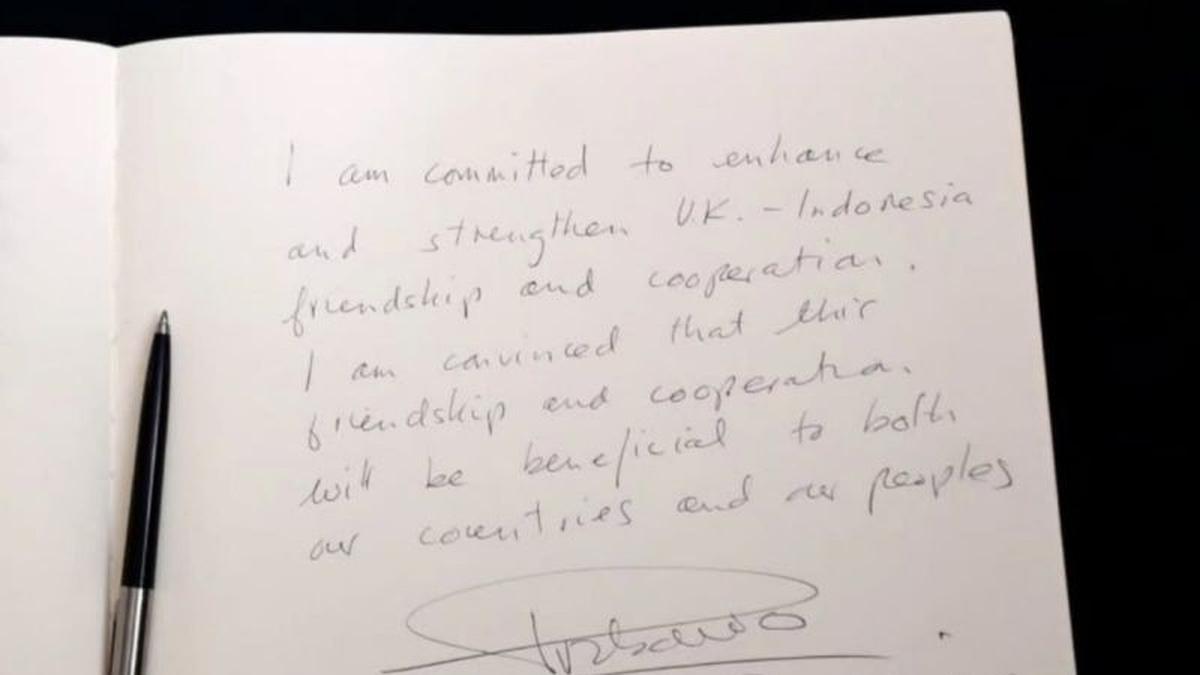 I am committed to enhance
and strengthen U.K. - Indonesia
friendship and cooperation.
I am convinced that this
friendship and cooperation
will be beneficial to both
our countries and our peoples
Prabowo